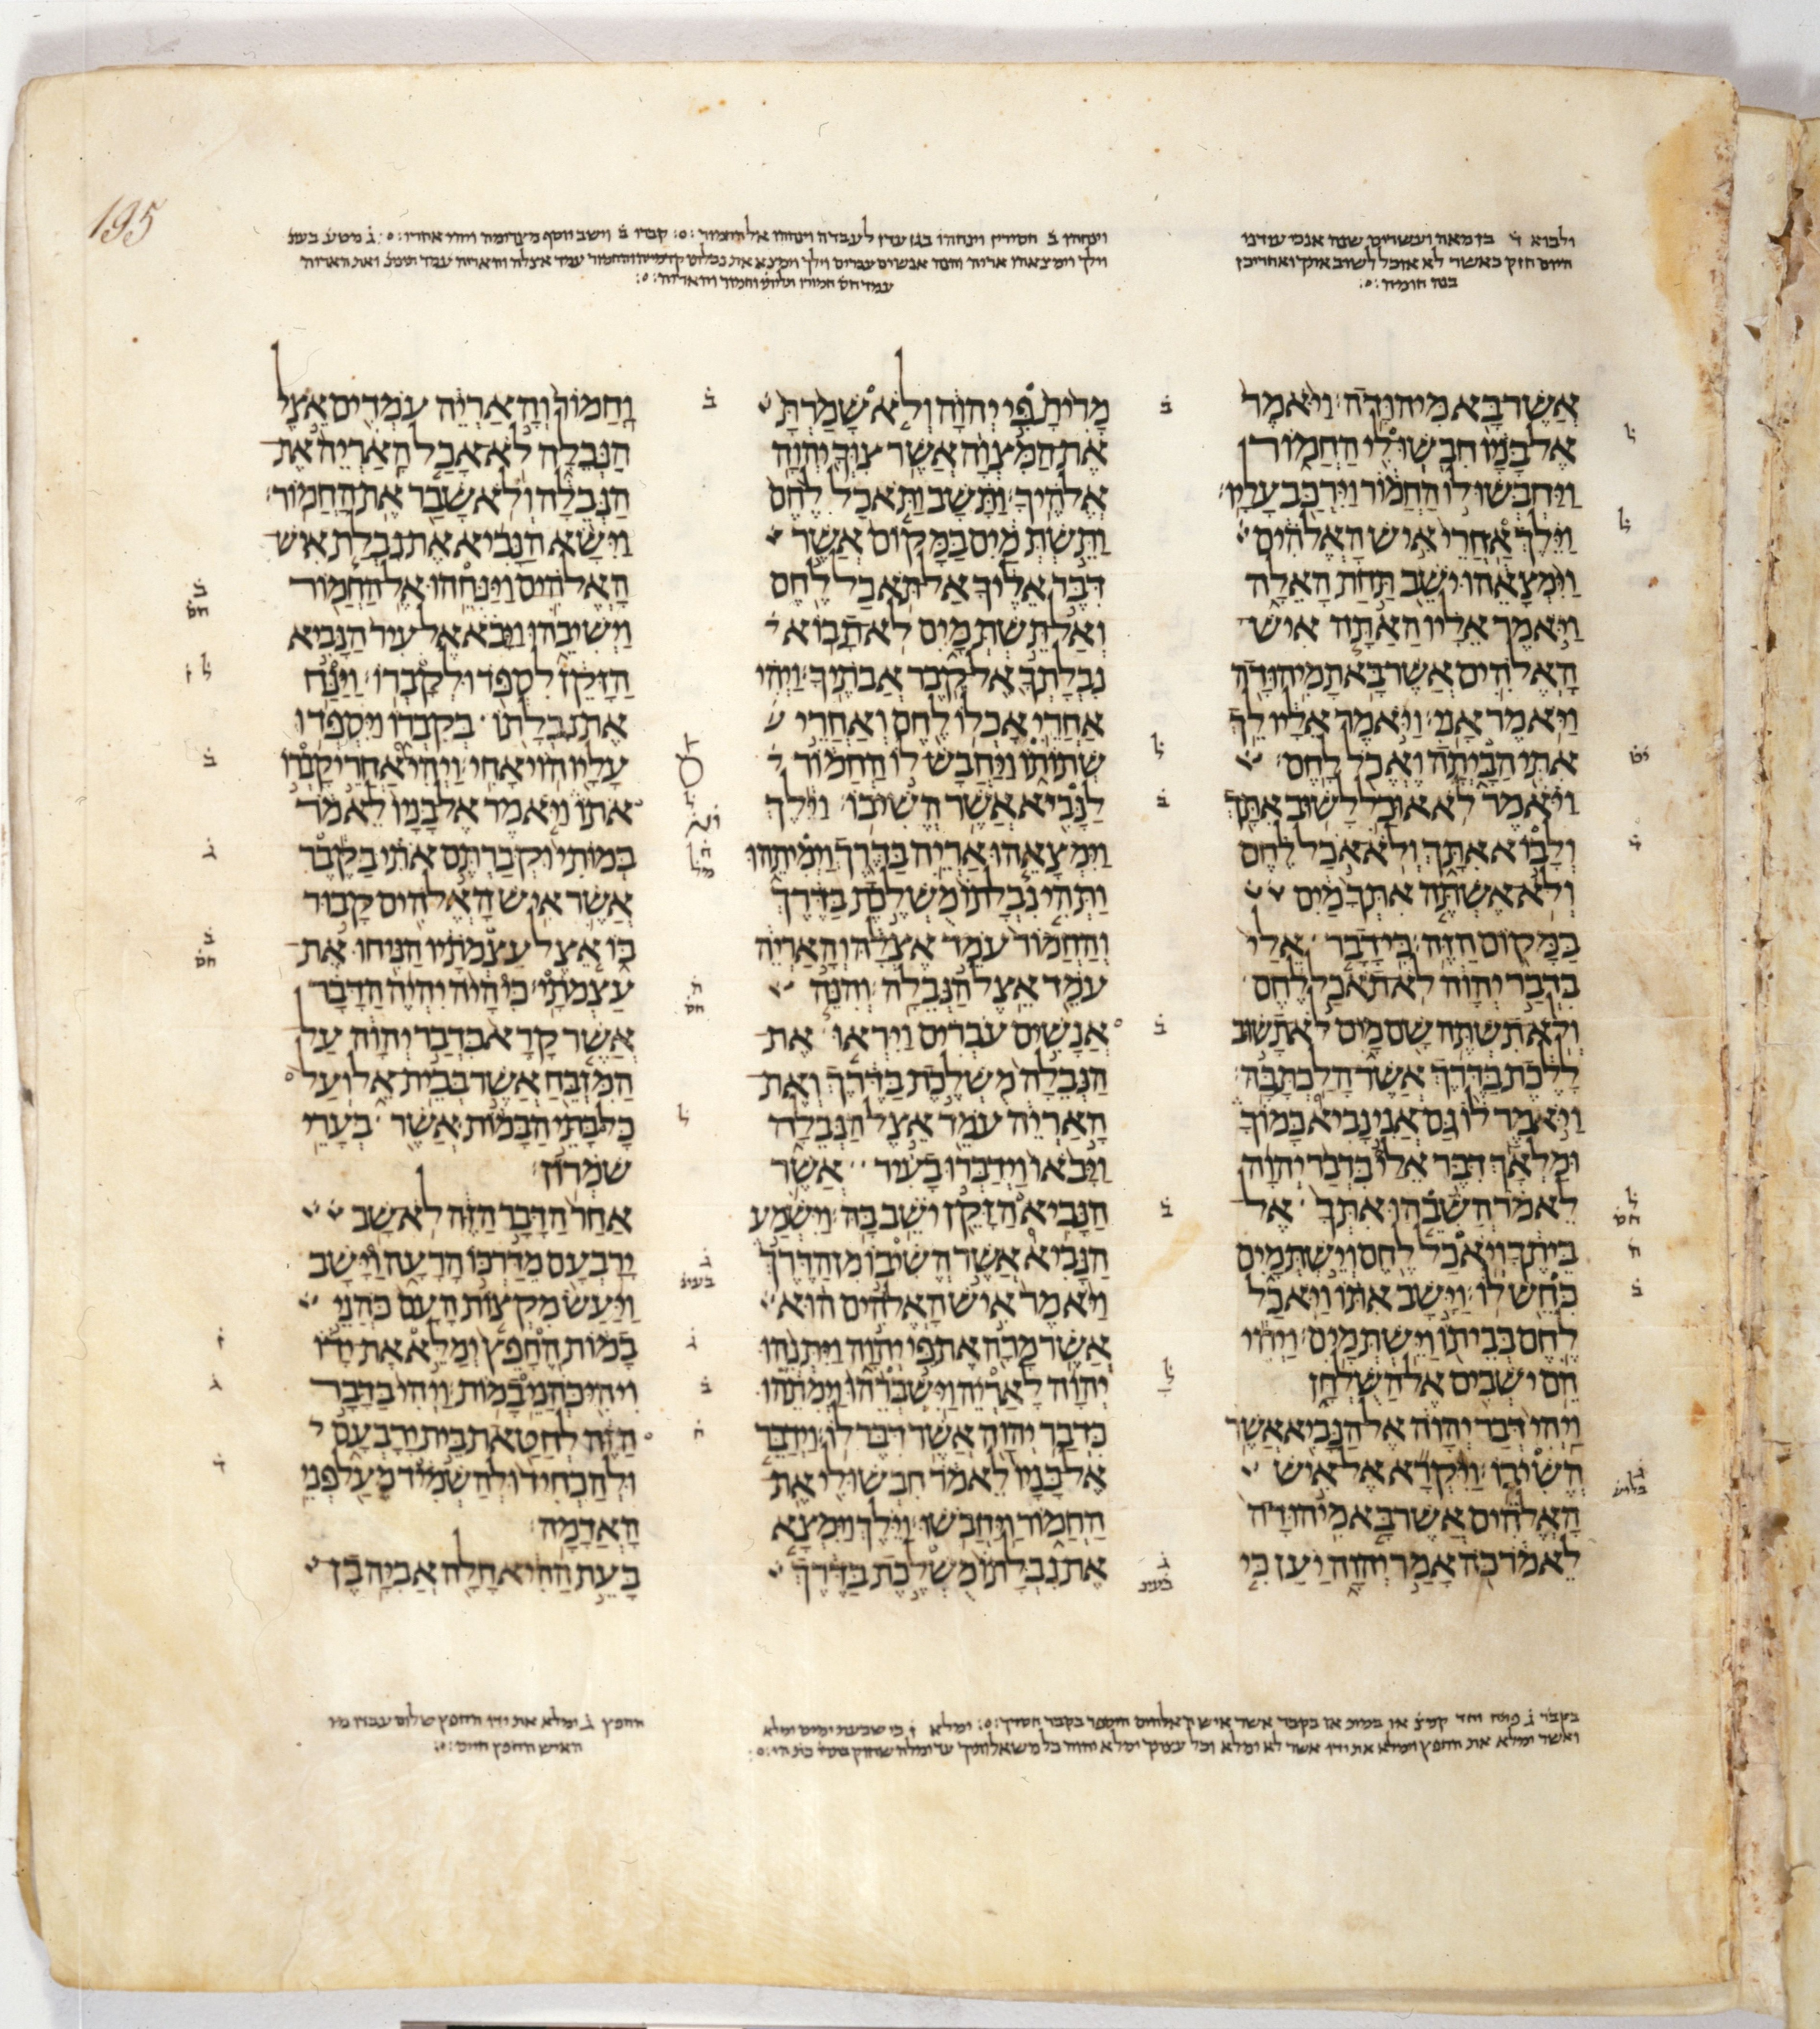 195
ולבוא ד̇ בן מאה ועשרים שנה אנכי עמדנו
היום חזק כאשר לא אוכל לשוב אתך ואחרי כן
בנה חומה
אֲשֶׁר בָּא מִיהוּדָה וַיֹּאמֶר
אֶל בָּנָיו חִבְשׁוּ לִי הַחֲמוֹר
וַיַּחְבְּשׁוּ לוֹ הַחֲמוֹר וַיִּרְכַּב עָלָיו׃
וַיֵּלֶךְ אַחֲרֵי אִישׁ הָאֱלֹהִים
וַיִּמְצָאֵהוּ יֹשֵׁב תַּחַת הָאֵלָה
וַיֹּאמֶר אֵלָיו הַאַתָּה אִישׁ
הָאֱלֹהִים אֲשֶׁר בָּאתָ מִיהוּדָה
וַיֹּאמֶר אָנִי׃ וַיֹּאמֶר אֵלָיו לֵךְ
אִתִּי הַבָּיְתָה וֶאֱכֹל לָחֶם׃
וַיֹּאמֶר לֹא אוּכַל לָשׁוּב אִתָּךְ
וְלָבוֹא אִתָּךְ וְלֹא אֹכַל לֶחֶם
וְלֹא אֶשְׁתֶּה אִתְּךָ מַיִם
בַּמָּקוֹם הַזֶּה׃ כִּי דָבָר אֵלַי
בִּדְבַר יְהוָה לֹא תֹאכַל לֶחֶם
וְלֹא תִשְׁתֶּה שָׁם מָיִם לֹא תָשׁוּב
לָלֶכֶת בַּדֶּרֶךְ אֲשֶׁר הָלַכְתָּ בָּהּ׃
וַיֹּאמֶר לוֹ גַּם אֲנִי נָבִיא כָּמוֹךָ
וּמַלְאָךְ דִּבֶּר אֵלַי בִּדְבַר יְהוָה
לֵאמֹר הֲשִׁבֵהוּ אִתְּךָ אֶל
בֵּיתֶךָ וְיֹאכַל לֶחֶם וְיֵשְׁתְּ מָיִם
כִּחֵשׁ לוֹ׃ וַיָּשָׁב אִתּוֹ וַיֹּאכַל
לֶחֶם בְּבֵיתוֹ וַיֵּשְׁתְּ מָיִם׃ וַיְהִי
הֵם יֹשְׁבִים אֶל הַשֻּׁלְחָן
וַיְהִי דְּבַר יְהוָה אֶל הַנָּבִיא אֲשֶׁר
הֱשִׁיבוֹ׃ וַיִּקְרָא אֶל אִישׁ
הָאֱלֹהִים אֲשֶׁר בָּא מִיהוּדָה
לֵאמֹר כֹּה אָמַר יְהוָה יַעַן כִּי
מָרִיתָ פִּי יְהוָה וְלֹא שָׁמַרְתָּ
אֶת הַמִּצְוָה אֲשֶׁר צִוְּךָ יְהוָה
אֱלֹהֶיךָ׃ וַתָּשָׁב וַתֹּאכַל לֶחֶם
וַתֵּשְׁתְּ מַיִם בַּמָּקוֹם אֲשֶׁר
דִּבֶּר אֵלֶיךָ אַל תֹּאכַל לֶחֶם
וְאַל תֵּשְׁתְּ מָיִם לֹא תָבוֹא
נִבְלָתְךָ אֶל קֶבֶר אֲבֹתֶיךָ׃ וַיְהִי
אַחֲרֵי אָכְלוֹ לֶחֶם וְאַחֲרֵי
שְׁתוֹתוֹ וַיַּחֲבָשׁ לוֹ הַחֲמוֹר
לַנָּבִיא אֲשֶׁר הֱשִׁיבוֹ׃ וַיֵּלֶךְ
וַיִּמְצָאֵהוּ אַרְיֵה בַּדֶּרֶךְ וַיְמִיתֵהוּ
וַתְּהִי נִבְלָתוֹ מֻשְׁלֶכֶת בַּדֶּרֶךְ
וְהַחֲמוֹר עֹמֵד אֶצְלָהּ וְהָאַרְיֵה
עֹמֵד אֵצֶל הַנְּבֵלָה׃ וְהִנֵּה
אֲנָשִׁים עֹבְרִים וַיִּרְאוּ אֶת
הַנְּבֵלָה מֻשְׁלֶכֶת בַּדֶּרֶךְ וְאֶת
הָאַרְיֵה עֹמֵד אֵצֶל הַנְּבֵלָה
וַיָּבֹאוּ וַיְדַבְּרוּ בָעִיר אֲשֶׁר
הַנָּבִיא הַזָּקֵן יֹשֵׁב בָּהּ׃ וַיִּשְׁמַע
הַנָּבִיא אֲשֶׁר הֱשִׁיבוֹ מִן הַדֶּרֶךְ
וַיֹּאמֶר אִישׁ הָאֱלֹהִים הוּא
אֲשֶׁר מָרָה אֶת פִּי יְהוָה וַיִּתְּנֵהוּ
יְהוָה לָאַרְיֵה וַיִּשְׁבְּרֵהוּ וַיְמִתֵהוּ
כִּדְבַר יְהוָה אֲשֶׁר דִּבֶּר לוֹ׃ וַיְדַבֵּר
אֶל בָּנָיו לֵאמֹר חִבְשׁוּ לִי אֶת
הַחֲמוֹר וַיַּחֲבֹשׁוּ׃ וַיֵּלֶךְ וַיִּמְצָא
אֶת נִבְלָתוֹ מֻשְׁלֶכֶת בַּדֶּרֶךְ
וַחֲמוֹר וְהָאַרְיֵה עֹמְדִים אֵצֶל
הַנְּבֵלָה לֹא אָכַל הָאַרְיֵה אֶת
הַנְּבֵלָה וְלֹא שָׁבַר אֶת הַחֲמוֹר׃
וַיִּשָּׂא הַנָּבִיא אֶת נִבְלַת אִישׁ
הָאֱלֹהִים וַיַּנִּחֵהוּ אֶל הַחֲמוֹר
וַיְשִׁיבֵהוּ וַיָּבֹא אֶל עִיר הַנָּבִיא
הַזָּקֵן לִסְפֹּד וּלְקָבְרוֹ׃ וַיַּנַּח
אֶת נִבְלָתוֹ בְּקִבְרוֹ וַיִּסְפְּדוּ
עָלָיו הוֹי אָחִי׃ וַיְהִי אַחֲרֵי קָבְרוֹ
אֹתוֹ וַיֹּאמֶר אֶל בָּנָיו לֵאמֹר
בְּמוֹתִי וּקְבַרְתֶּם אֹתִי בַּקֶּבֶר
אֲשֶׁר אִישׁ הָאֱלֹהִים קָבוּר
בּוֹ אֵצֶל עַצְמֹתָיו הַנִּיחוּ אֶת
עַצְמֹתָי׃ כִּי הָיֹה יִהְיֶה הַדָּבָר
אֲשֶׁר קָרָא בִּדְבַר יְהוָה עַל
הַמִּזְבֵּחַ אֲשֶׁר בְּבֵית אֵל וְעַל
כָּל בָּתֵּי הַבָּמוֹת אֲשֶׁר בְּעָרֵי
שֹׁמְרוֹן׃
אַחַר הַדָּבָר הַזֶּה לֹא שָׁב
יָרָבְעָם מִדַּרְכּוֹ הָרָעָה וַיָּשָׁב
וַיַּעַשׂ מִקְצוֹת הָעָם כֹּהֲנֵי
בָמוֹת הֶחָפֵץ יְמַלֵּא אֶת יָדוֹ
וִיהִי כֹּהֲנֵי בָמוֹת׃ וַיְהִי בַּדָּבָר
הַזֶּה לְחַטַּאת בֵּית יָרָבְעָם
וּלְהַכְחִיד וּלְהַשְׁמִיד מֵעַל פְּנֵי
הָאֲדָמָה׃
בָּעֵת הַהִיא חָלָה אֲבִיָּה בֶן
החפץ ג̇ ימלא את ידו החפץ שלום עבדו מי
האיש החפץ חיים